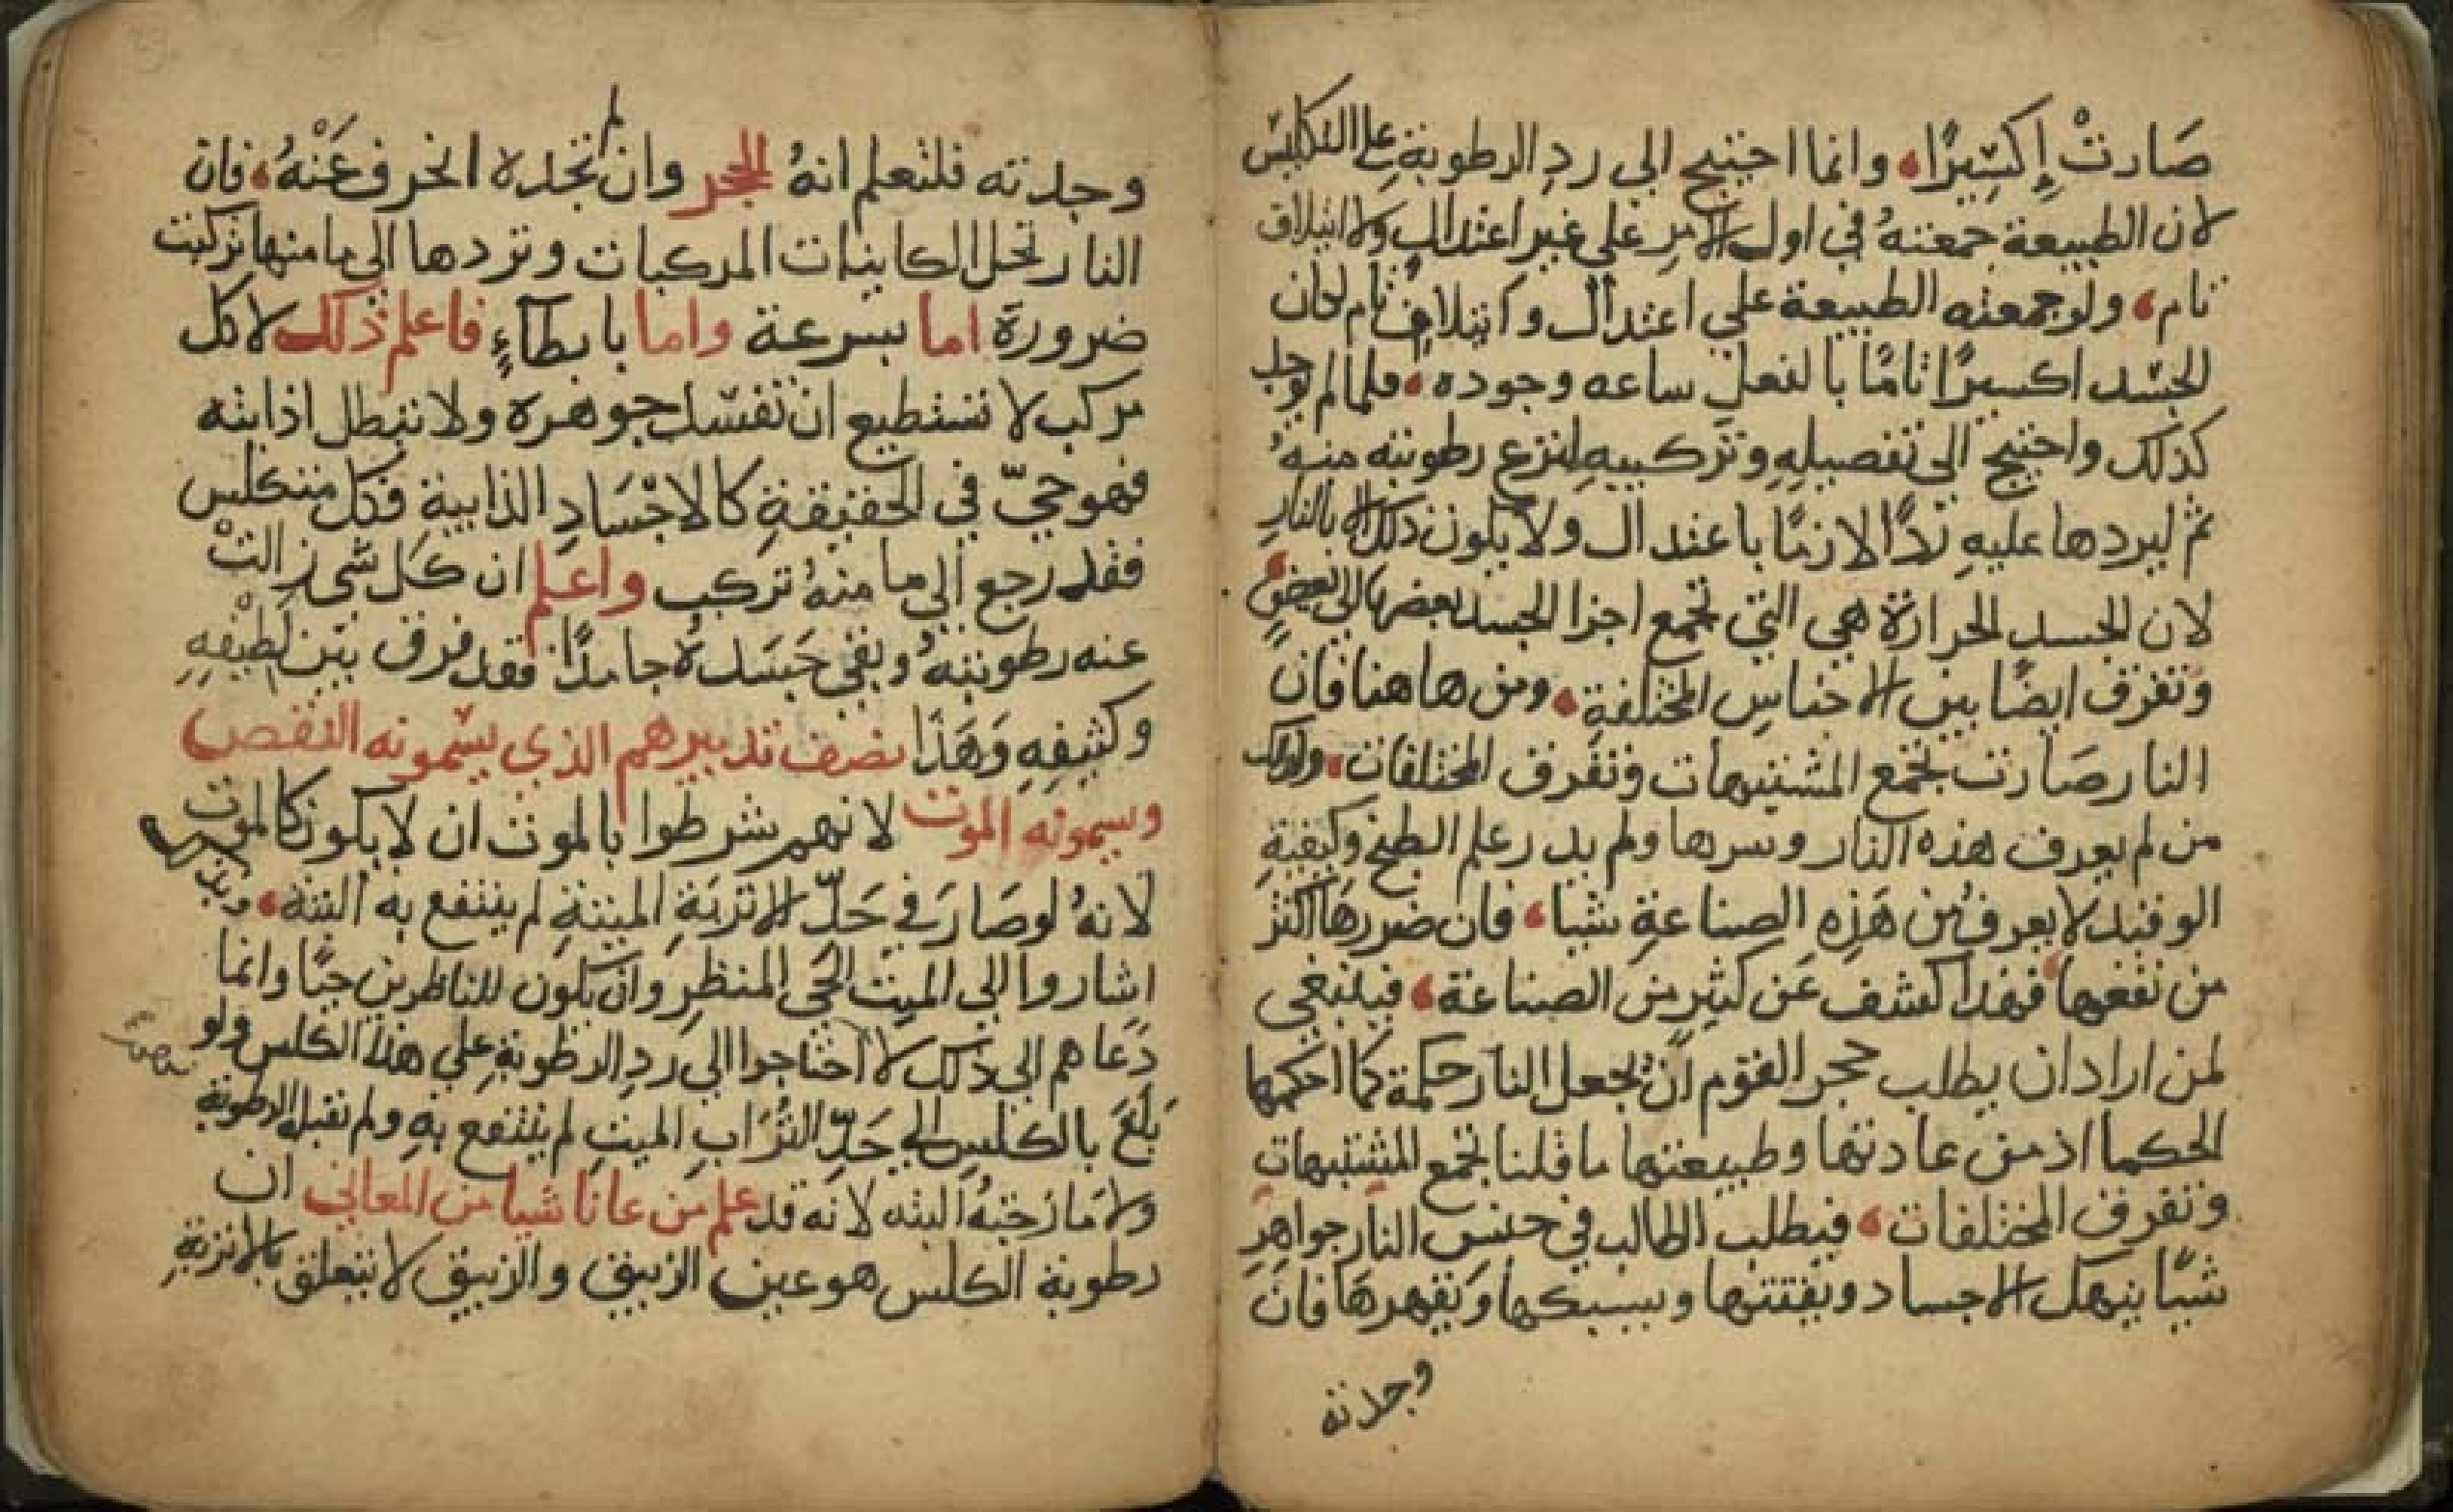 صَارتْ إِكسِيرًا، وانما احتيج الي ردِ الرطوبةِ علي التكليس
لان الطبيعة جمعتهُ في اول الامرِ علي غير اعتدالٍ ولا ايتلاف
تام، ولو جمعته الطبيعة علي اعتدال وايتلافٍ تام لكان
الجسد اكسيرًا تامًا بالفعل ساعه وجوده، فلما لم يوجد
كذلك واحتيج الي تفصيلِهِ وتركيبهِ لنزع رطوبته منهُ
ثم ليردها عليهِ ردًا لازمًا باعتدال ولا يكون ذلك الا بالنارِ
لان الجسد الحرارة هي التي تجمع اجزا الجسد بعضها الي بعضٍ،
وتفرق ايضًا بين الاجناسِ المختلفةِ، ومن هاهنا فان
النار صَارت تجمع المشتبهات وتفرق المختلفات،
من لم يعرف هذه النار وسرها ولم يدر علم الطبخ وكيفيةِ
الوقيد لا يعرف من هَذِهِ الصناعةِ شيا، فان ضررهَا اكثر
من نفعها، فهذا كشف عَن كثيرٍ من الصناعة، فينبغي
لمن اراد ان يطلب حجر القوم ان يجعل النار حكمة كما احكمها
الحكما اذ من عادتها وطبيعتها ما قلنا تجمع المشتبهات
وتفرق المختلفات، فيطلب الطالب في جنس النار جواهرِ
شيًا ينهك الاجساد ويفتتها ويسبكها وَيقهرهَا فان
وجدته
وجدته فلتعلم انهُ الحجر وان لم تجده انحرف عَنْهُ، فان
النار تحل الكاينات المركبات وتردها الي ما منها تركبت
ضرورةً اما بسرعة واما بابطآءٍ فاعلم ذلك لا كل
مركب لا تستطيع ان تفسد جوهره ولا تبطل اذابته
فهو حيّ في الحقيقةِ كالاجْسَادِ الذايبةِ فكل متكلس
فقد رجع الي ما منهُ تركب واعلم ان كل شي زالتْ
عنه رطوبتهُ وبقي جَسَدهُ جامدًا فقد فرق بيَن لَطِيْفِهِ
وكثيفِهِ وَهَذا نصف تدبيرهم الذي يسمونه النقص
ويسمونه الموت لانهم شرطوا بالموت ان لا يكون كالموت
لانهُ لو صَارَ في حَدّ الاتربَةِ الميتةِ لم ينتفع به البتة،
اشاروا الي الميت الحَي المنظرِ وان يكون للناظرين حيًا وانما
دَعاهم الي ذلك لاحتاجوا الي ردِ الرطوبةِ علي هذا الكلس ولو
بَلَغَ بالكلسِ الي حَدّ التُرَابِ الميتِ لم ينتفع بهِ ولم تقبل الرطوبة
ولا مازجتهُ البته لانه قد علم من عانا شيا من المعاني ان
رطوبة الكلس هو عين الزيبق والزيبق لا يتعلق بالاتربةِ